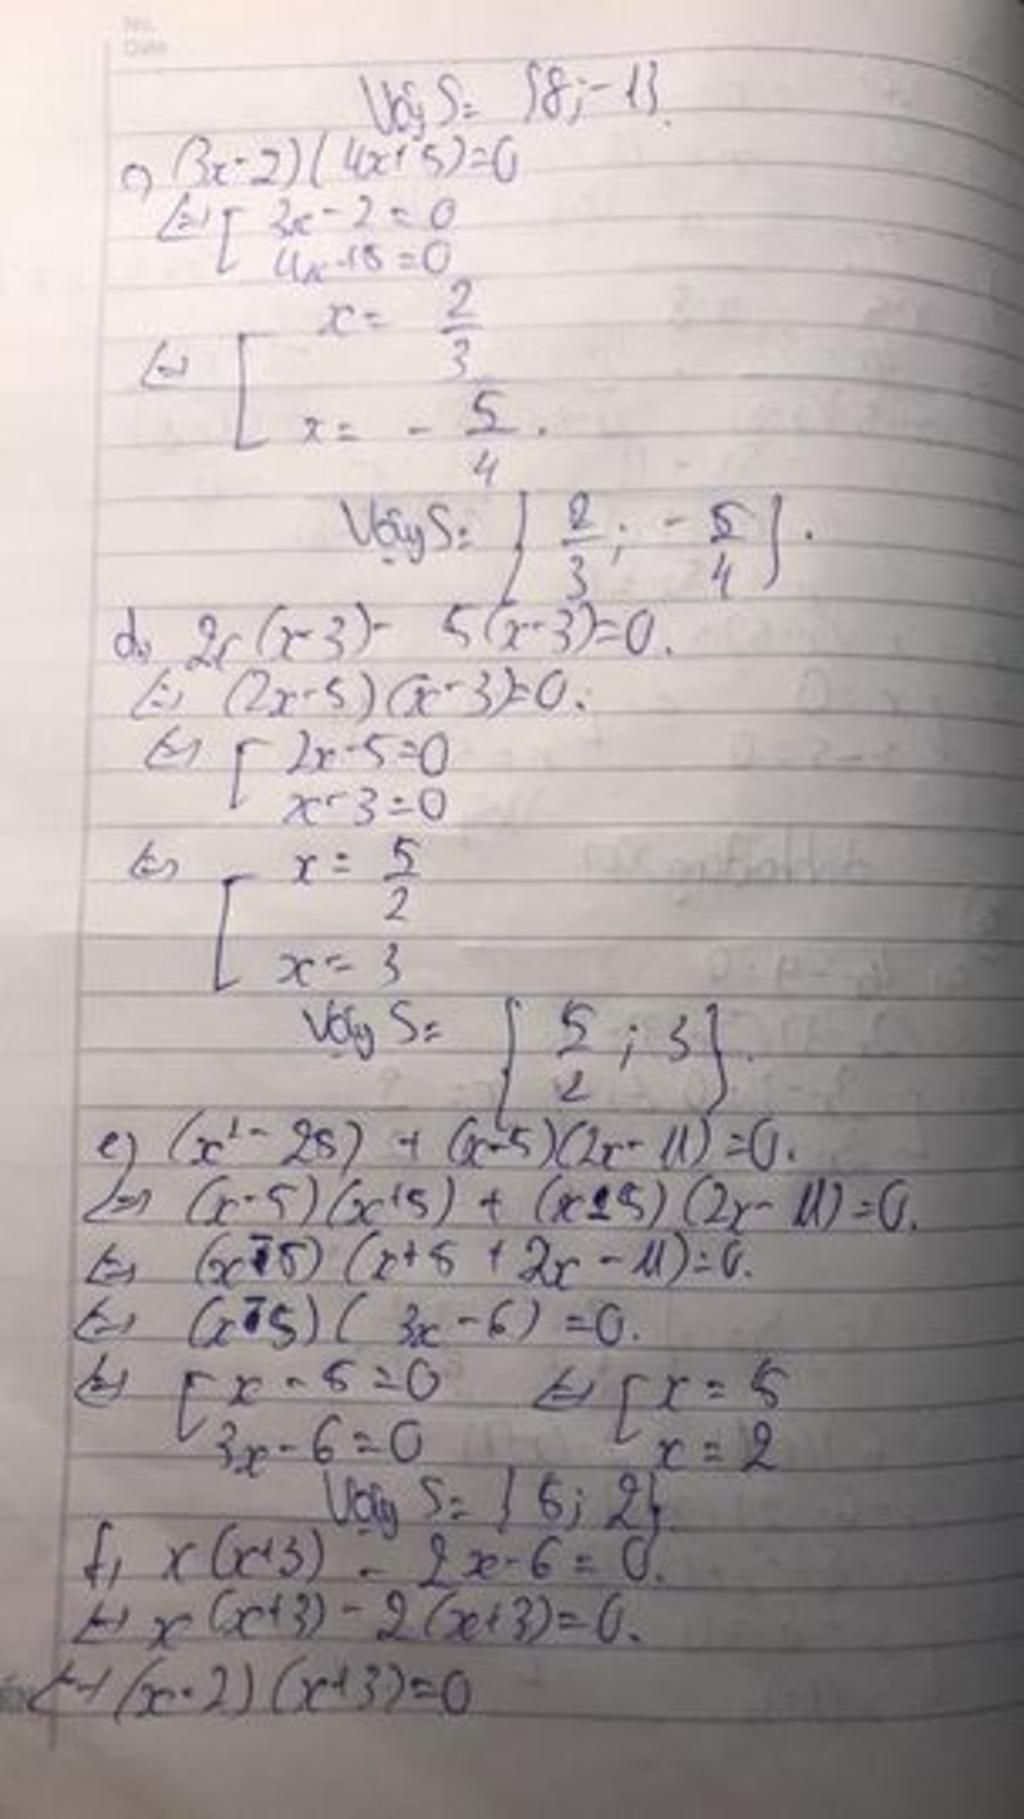 No.
Date
Vậy S = {8; -1}.
c, (3x-2)(4x+5)=0
⇔ [ 3x-2=0
4x+5=0
⇔ [ x = 2/3
x = - 5/4.
Vậy S = { 2/3 ; - 5/4 }.
d, 2x(x-3) - 5(x-3)=0.
⇔ (2x-5)(x-3)=0.
⇔ [ 2x-5=0
x-3=0
⇔ [ x = 5/2
x = 3
Vậy S = { 5/2 ; 3 }.
e) (x² - 25) + (x-5)(2x-11)=0.
⇔ (x-5)(x+5) + (x-5)(2x-11)=0.
⇔ (x-5)(x+5+2x-11)=0.
⇔ (x-5)(3x-6)=0.
⇔ [ x-5=0 ⇔ [ x=5
3x-6=0 x=2
Vậy S = {5; 2}
f, x(x+3) - 2x-6=0.
⇔ x(x+3) - 2(x+3)=0.
⇔ (x-2)(x+3)=0